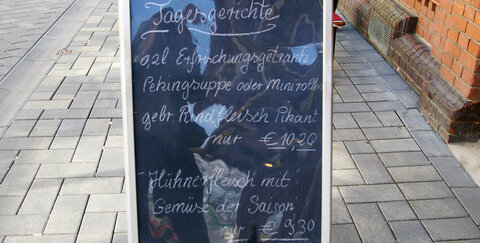 Tagesgerichte
0,2l Erfrischungsgetränk
Pekingsuppe oder Minirollen
gebr. Rindfleisch Pikant
nur € 10,20
Hühnerfleisch mit
Gemüse der Saison
nur € 9,30